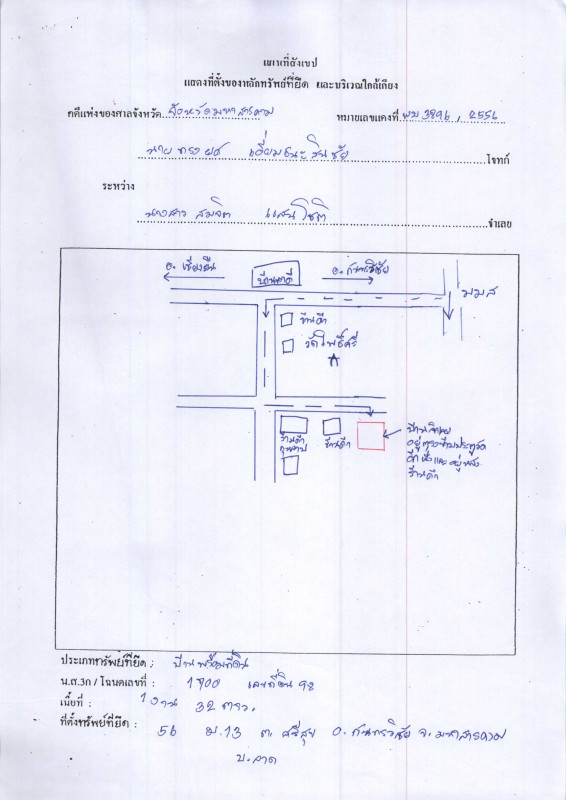 แผนที่สังเขป
แสดงที่ตั้งของหลักทรัพย์ที่ยึด และบริเวณใกล้เคียง
คดีแพ่งของศาลจังหวัด จังหวัดมหาสารคาม หมายเลขแดงที่ ผบ 3896 / 2556
นาย ทรงยศ เอี่ยมธนะสินชัย โจทก์
ระหว่าง
นางสาว สมจิต แสนโชติ จำเลย
อ. เชียงยืน
อ. กันทรวิชัย
มมส
วัดโพธิ์ศรี
ร้านค้า
ร้านค้า
บ้านจำเลย
ประเภททรัพย์ที่ยึด : บ้านพร้อมที่ดิน
น.ส.3ก / โฉนดเลขที่ : 1700 เลขที่ดิน 98
เนื้อที่ : 1 งาน 32 ตรว.
ที่ตั้งทรัพย์ที่ยึด : 56 ม.13 ต. ศรีสุข อ. กันทรวิชัย จ. มหาสารคาม
บ. ลาด